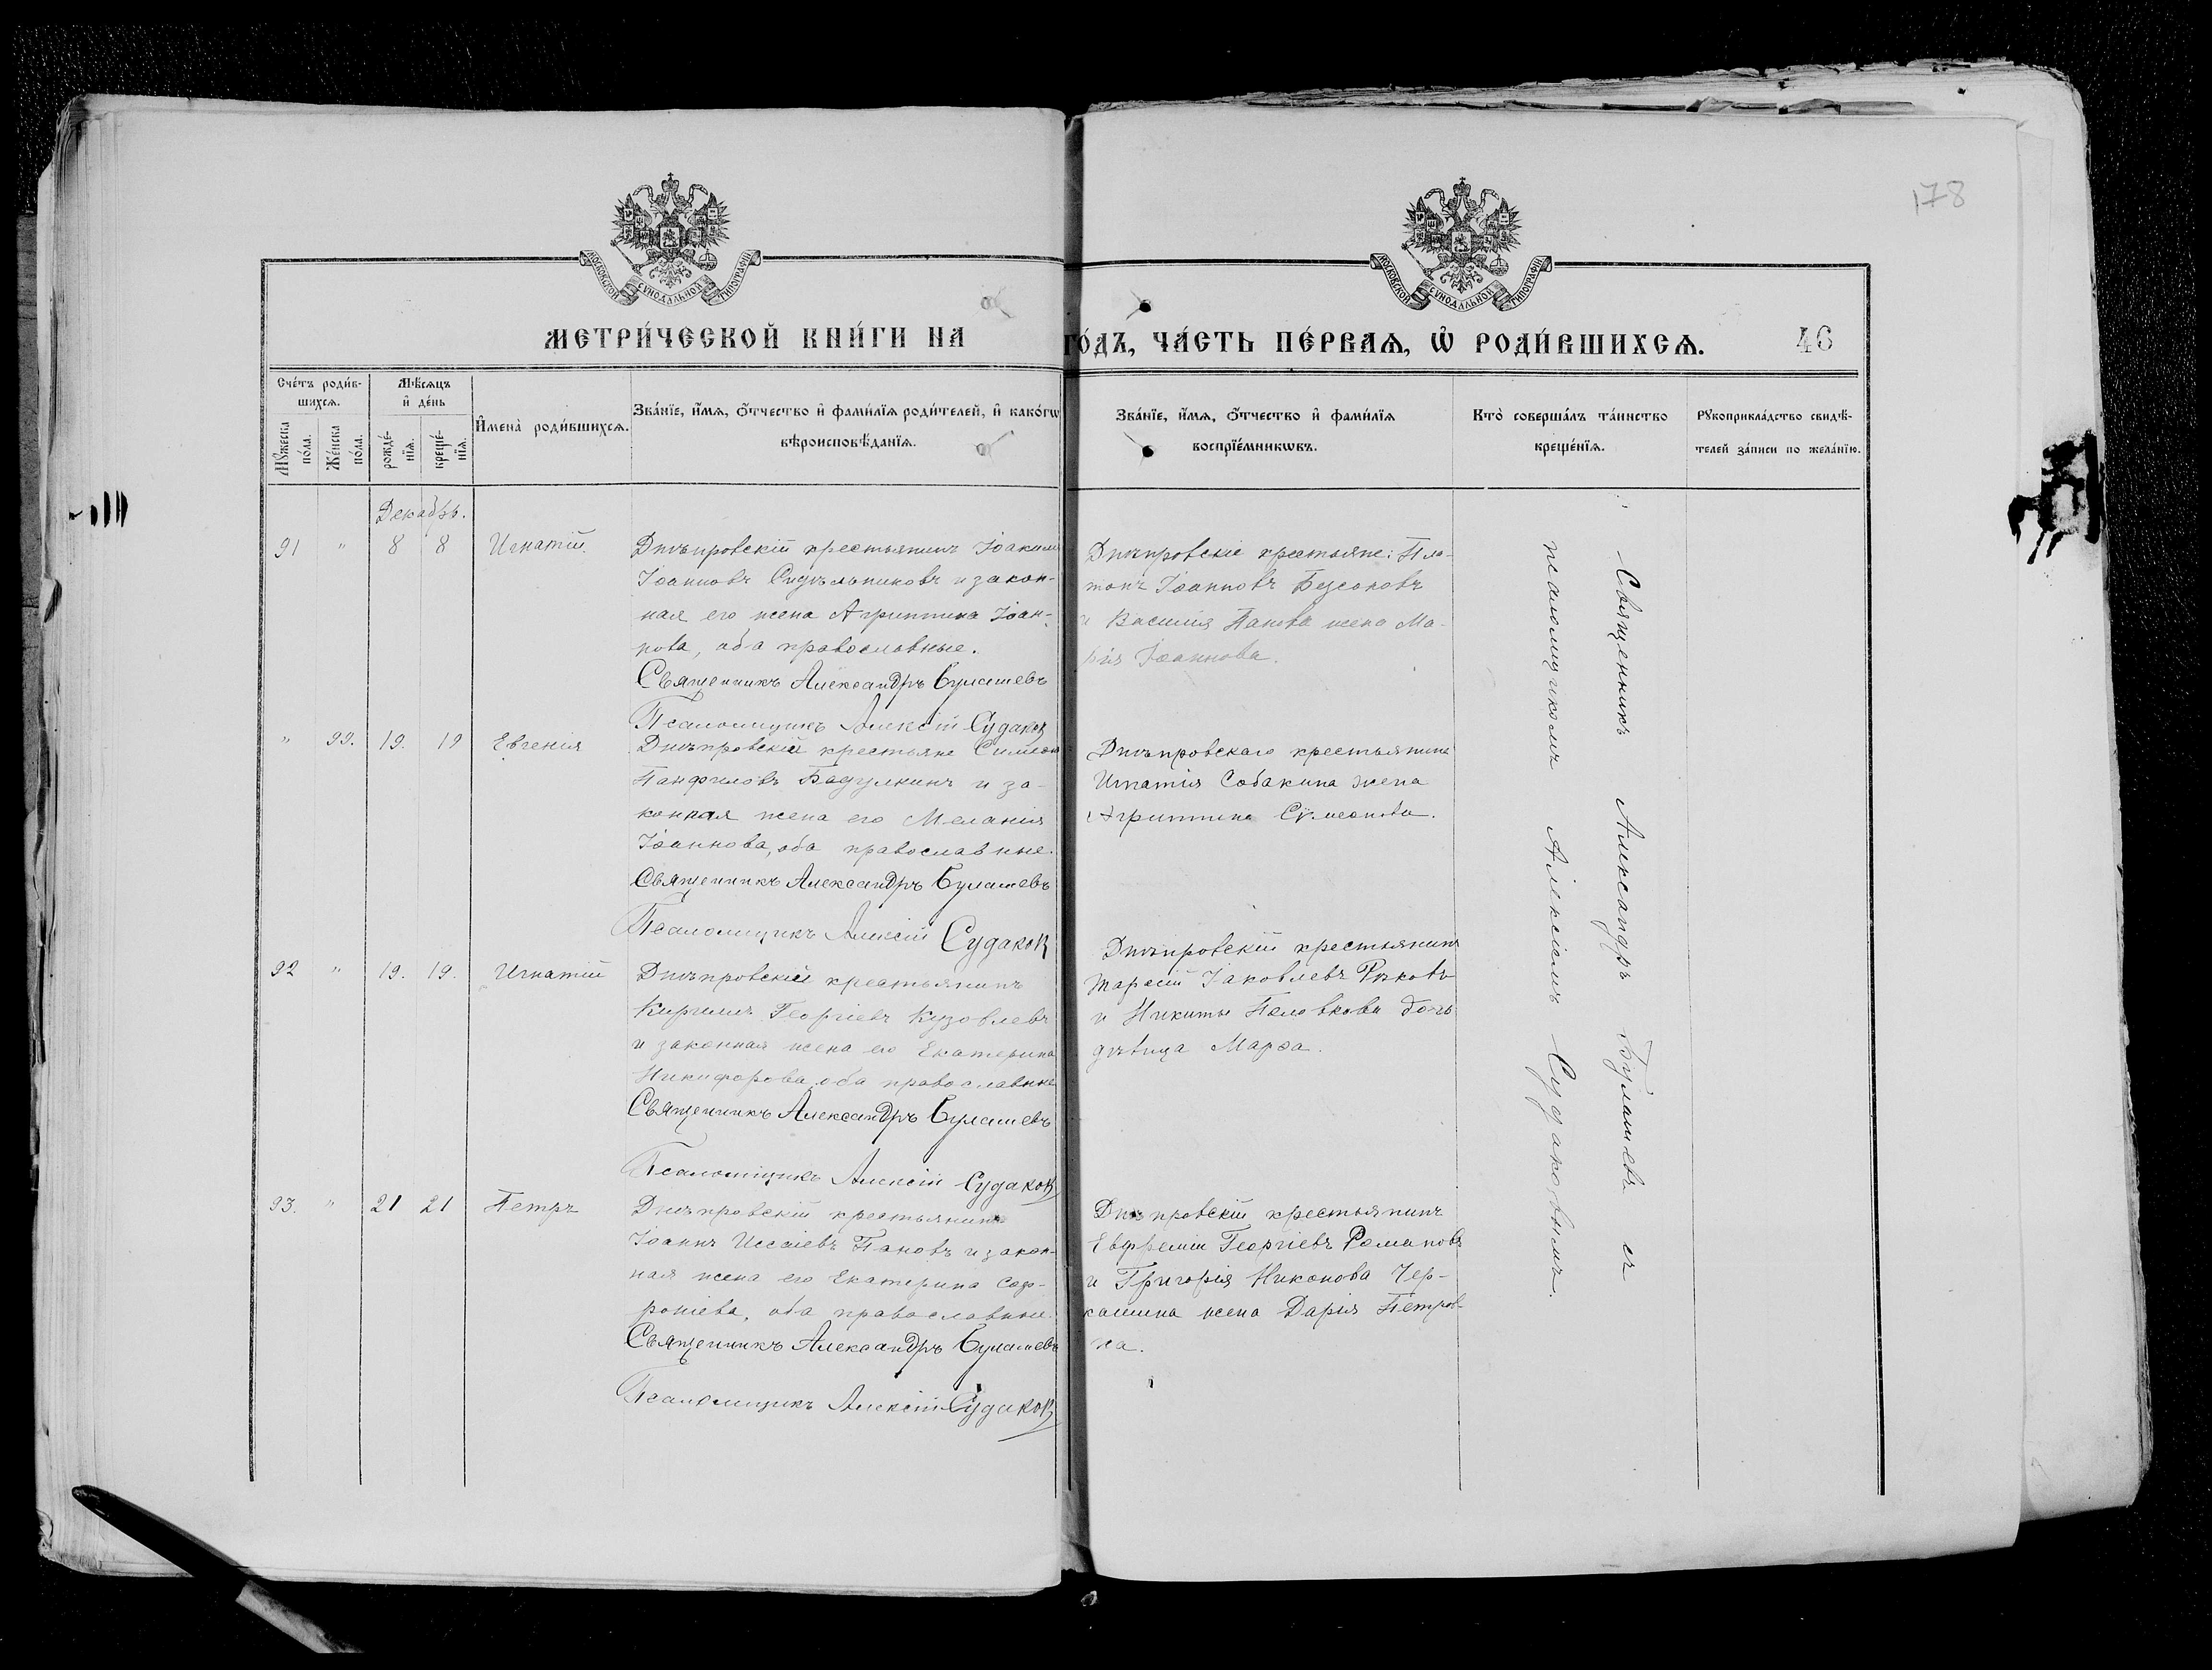 178
МОСКОВСКОЙ СѴНОДАЛЬНОЙ ТИПОГРАФІИ
МОСКОВСКОЙ СѴНОДАЛЬНОЙ ТИПОГРАФІИ
МЕТРИ́ЧЕСКОЙ КНИ́ГИ НА ГО́ДЪ, ЧА́СТЬ ПЕ́РВАѦ, Ѡ҆ РОДИ́ВШИХСѦ. 46
Сче́тъ роди́вшихсѧ.
Мꙋ́жеска по́ла.
Же́нска по́ла.
Мѣ́сѧцъ и҆ де́нь
рожде́нїѧ.
креще́нїѧ.
И҆мена̀ роди́вшихсѧ.
Зва́нїе, и҆́мѧ, ѻ҆́тчество и҆ фами́лїѧ роди́телей, и҆ како́гѡ
вѣроисповѣ́данїѧ.
Зва́нїе, и҆́мѧ, ѻ҆́тчество и҆ фами́лїѧ
воспрїе́мникѡвъ.
Кто̀ соверша́лъ та́инство
креще́нїѧ.
Рꙋкоприкла́дство свидѣ́-
телей за́писи по жела́нїю.
Декабрь.
91 " 8 8 Игнатій.
Днѣпровскій крестьянинъ Іоакимъ
Іоанновъ Сидѣльниковъ и закон-
ная его жена Агриппина Іоан-
нова, оба православные.
Священникъ Александръ Булашевъ
Псаломщикъ Алексій Судаков
Днѣпровскіе крестьяне: Пла-
тонъ Іоанновъ Безсоновъ
и Василія Панова жена Ма-
рія Іоаннова.
" 99. 19. 19 Евгенія
Днѣпровскіе крестьяне Симеон
Панфиловъ Бадулкинъ и за-
конная жена его Меланія
Іоаннова, оба православные.
Священникъ Александръ Булашевъ
Псаломщикъ Алексій Судаков
Днѣпровскаго крестьянина
Игнатія Собакина жена
Агриппина Сѵмеонова.
92 " 19. 19. Игнатій
Днѣпровскій крестьянинъ
Кириллъ Георгіевъ Кузовлевъ
и законная жена его Екатерина
Никифорова, оба православные
Священникъ Александръ Булашевъ
Псаломщикъ Алексій Судаков
Днѣпровскій крестьянинъ
Тарасій Іаковлевъ
и Никиты дочь
дѣвица Марѳа.
93. " 21 21 Петръ
Днѣпровскій крестьянинъ
Іоаннъ Исаіевъ Пановъ и закон-
ная жена его Екатерина Соф-
роніева, оба православные.
Священникъ Александръ Булашевъ
Псаломщикъ Алексій Судаков
Днѣпровскій крестьянинъ
Евфремій Георгіевъ Романовъ
и Григорія Никонова Чер-
кашина жена Дарія Петров-
на.
Священникъ Александръ Булашевъ съ
псаломщикомъ Алексіемъ Судаковымъ.